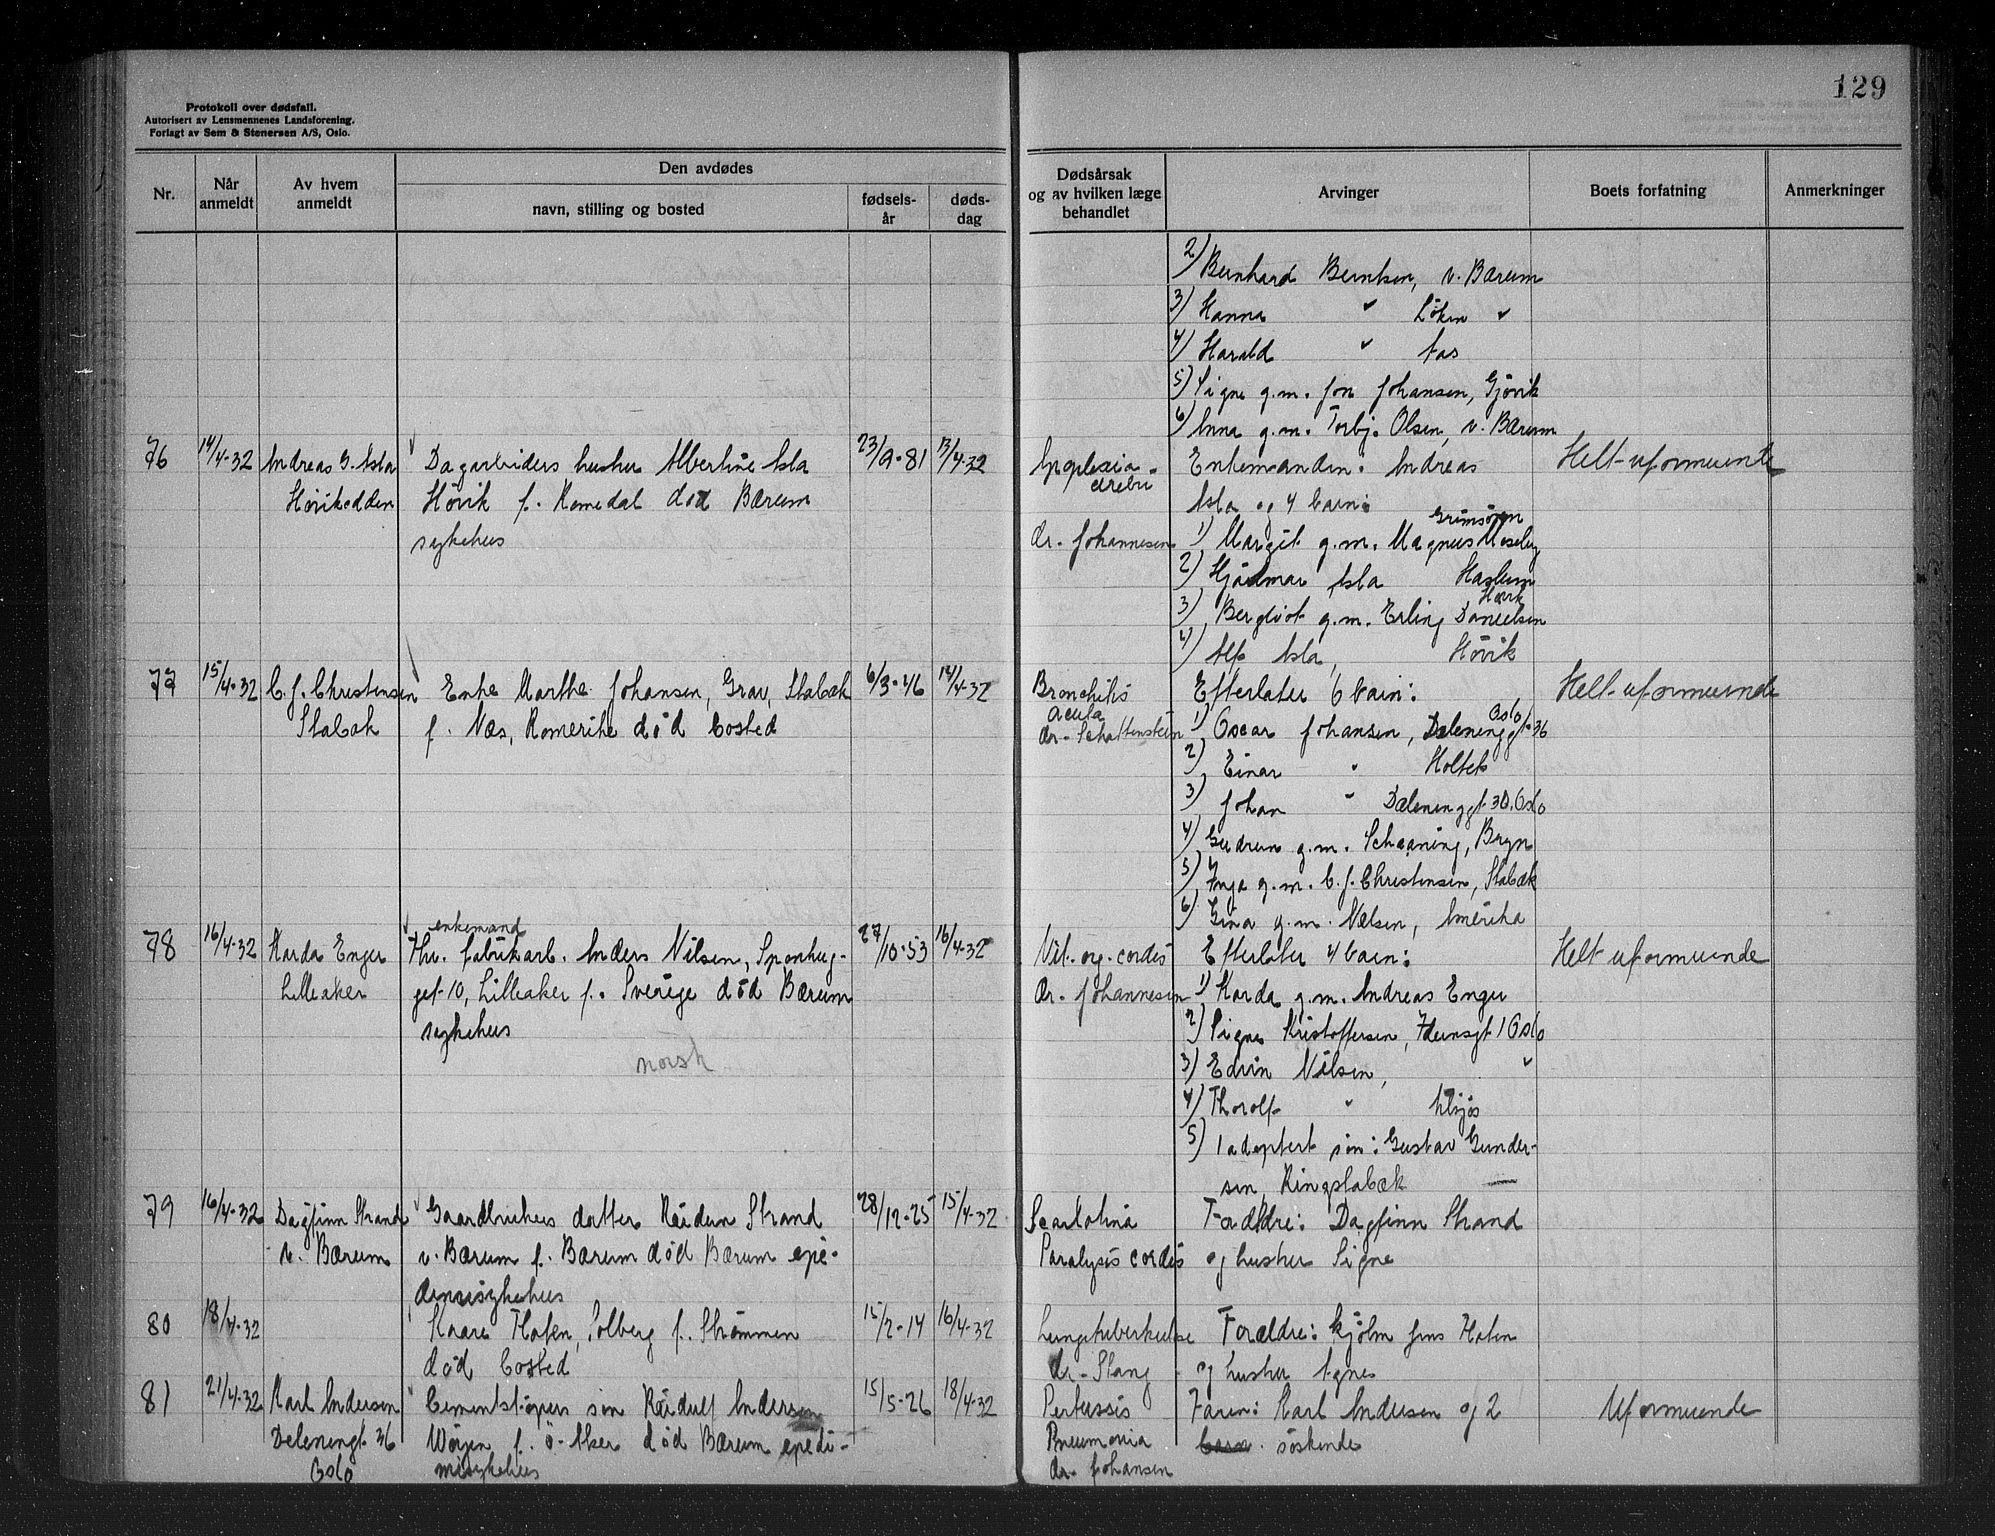 129
Protokoll over dødsfall.
Autorisert av Lensmennenes Landsforening.
Forlagt av Sem & Stenersen A/S, Oslo.
Nr.
Når anmeldt
Av hvem anmeldt
Den avdødes
navn, stilling og bosted
fødsels-år
døds-dag
Dødsårsak og av hvilken læge behandlet
Arvinger
Boets forfatning
Anmerkninger
2) Bernhard Berntsen, v. Bærum
3) Hanna " Løken "
4) Harald " Aas
5) Signe g.m. Jon Johansen, Gjøvik
6) Anna g.m. Torbj. Olsen, v. Bærum
76 14/4-32 Andreas G. Asla Dagarbeiders hustru Albertine Asla 23/9-81 13/4-32 Apoplexia Enkemanden: Andreas Helt uformuende
cerebri
Høvikodden Høvik f. Romedal død Bærum Asla og 4 barn:
sykehus dr. Johannesen 1) Margit g.m. Magnus Moseby
Grimsøen
2) Hjalmar Asla Haslum
3) Bergljot g.m. Erling Danielsen
Høvik
4) Alf Asla, Høvik
77 15/4-32 C.J. Christensen Enke Marthe Johansen, Grav, Stabæk 6/3-46 14/4-32 Bronchitis Efterlater 6 barn: Helt uformuende
Stabæk f. Næs, Romerike død bosted acuta
dr. Schattenstein 1) Oscar Johansen, Dælenenggt 36
Oslo
2) Einar " Holtek
3) Johan " Dælenenggt 30, Oslo
4) Gudrun g.m. Schaaning, Bryn
5) Inga g.m. C.J. Christensen, Stabæk
6) Gina g.m. Nelsen, Amerika
enkemand
78 16/4-32 Karda Enger Fhv. fabrikarb. Anders Nilsen, Sponhug- 27/10-53 16/4-32 Vit. org. cordis Efterlater 4 barn: Helt uformuende
Lilleaker get 10, Lilleaker f. Sverige død Bærum dr. Johannesen 1) Karda g.m. Andreas Enger
sykehus 2) Signe Kristoffersen, Idunsgt 1 Oslo
norsk
3) Edvin Nilsen, "
4) Thorolf "
5) 1 adoptert søn: Gustav Gunder-
sen, Ringstabæk
79 16/4-32 Dagfinn Strand Gaardbrukers datter Reidun Strand 28/12-25 15/4-32 Scarlatina Forældre: Dagfinn Strand
v. Bærum v. Bærum f. Bærum død Bærum epi- Paralysis cordis og hustru Signe
demisykehus
80 18/4-32 Kaare Hofen, Solberg f. Strømmen 15/2-14 16/4-32 Lungetuberkulose Forældre: Jens Hofen
død bosted dr. Stang og hustru Agnes
81 21/4-32 Karl Andersen Cementstøpers søn Reidulf Andersen 15/5-26 18/4-32 Pertussis Faren: Karl Andersen og 2 Uformuende
Delenengt 36 f. Ø. Aker død Bærum epede- Pneumonia barn. søskende
Oslo misykehus dr. Johansen